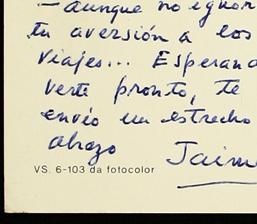 — aunque no ignor
tu aversión a los
viajes... Esperan
verte pronto, te
envío un estrecho
abrazo Jaim
VS. 6-103 da fotocolor